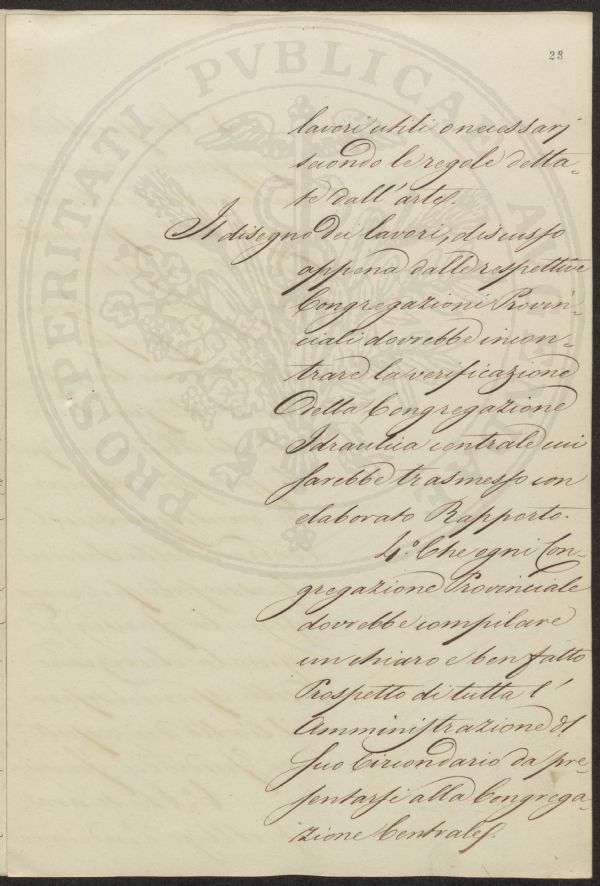 28
lavori utili o necessarj
secondo le regole detta-
te dall'arte.
Il disegno dei lavori, discusso
appena dalle respettive
Congregazioni Provin-
ciali dovrebbe incon-
trare la verificazione
della Congregazione
Idraulica centrale cui
sarebbe trasmesso con
elaborato Rapporto.
4.° Che ogni Con-
gregazione Provinciale
dovrebbe compilare
un chiaro e ben fatto
Prospetto di tutta l'
Amministrazione del
suo Circondario da pre-
sentarsi alla Congrega-
zione Centrale.
PROSPERITATI PVBLICAE